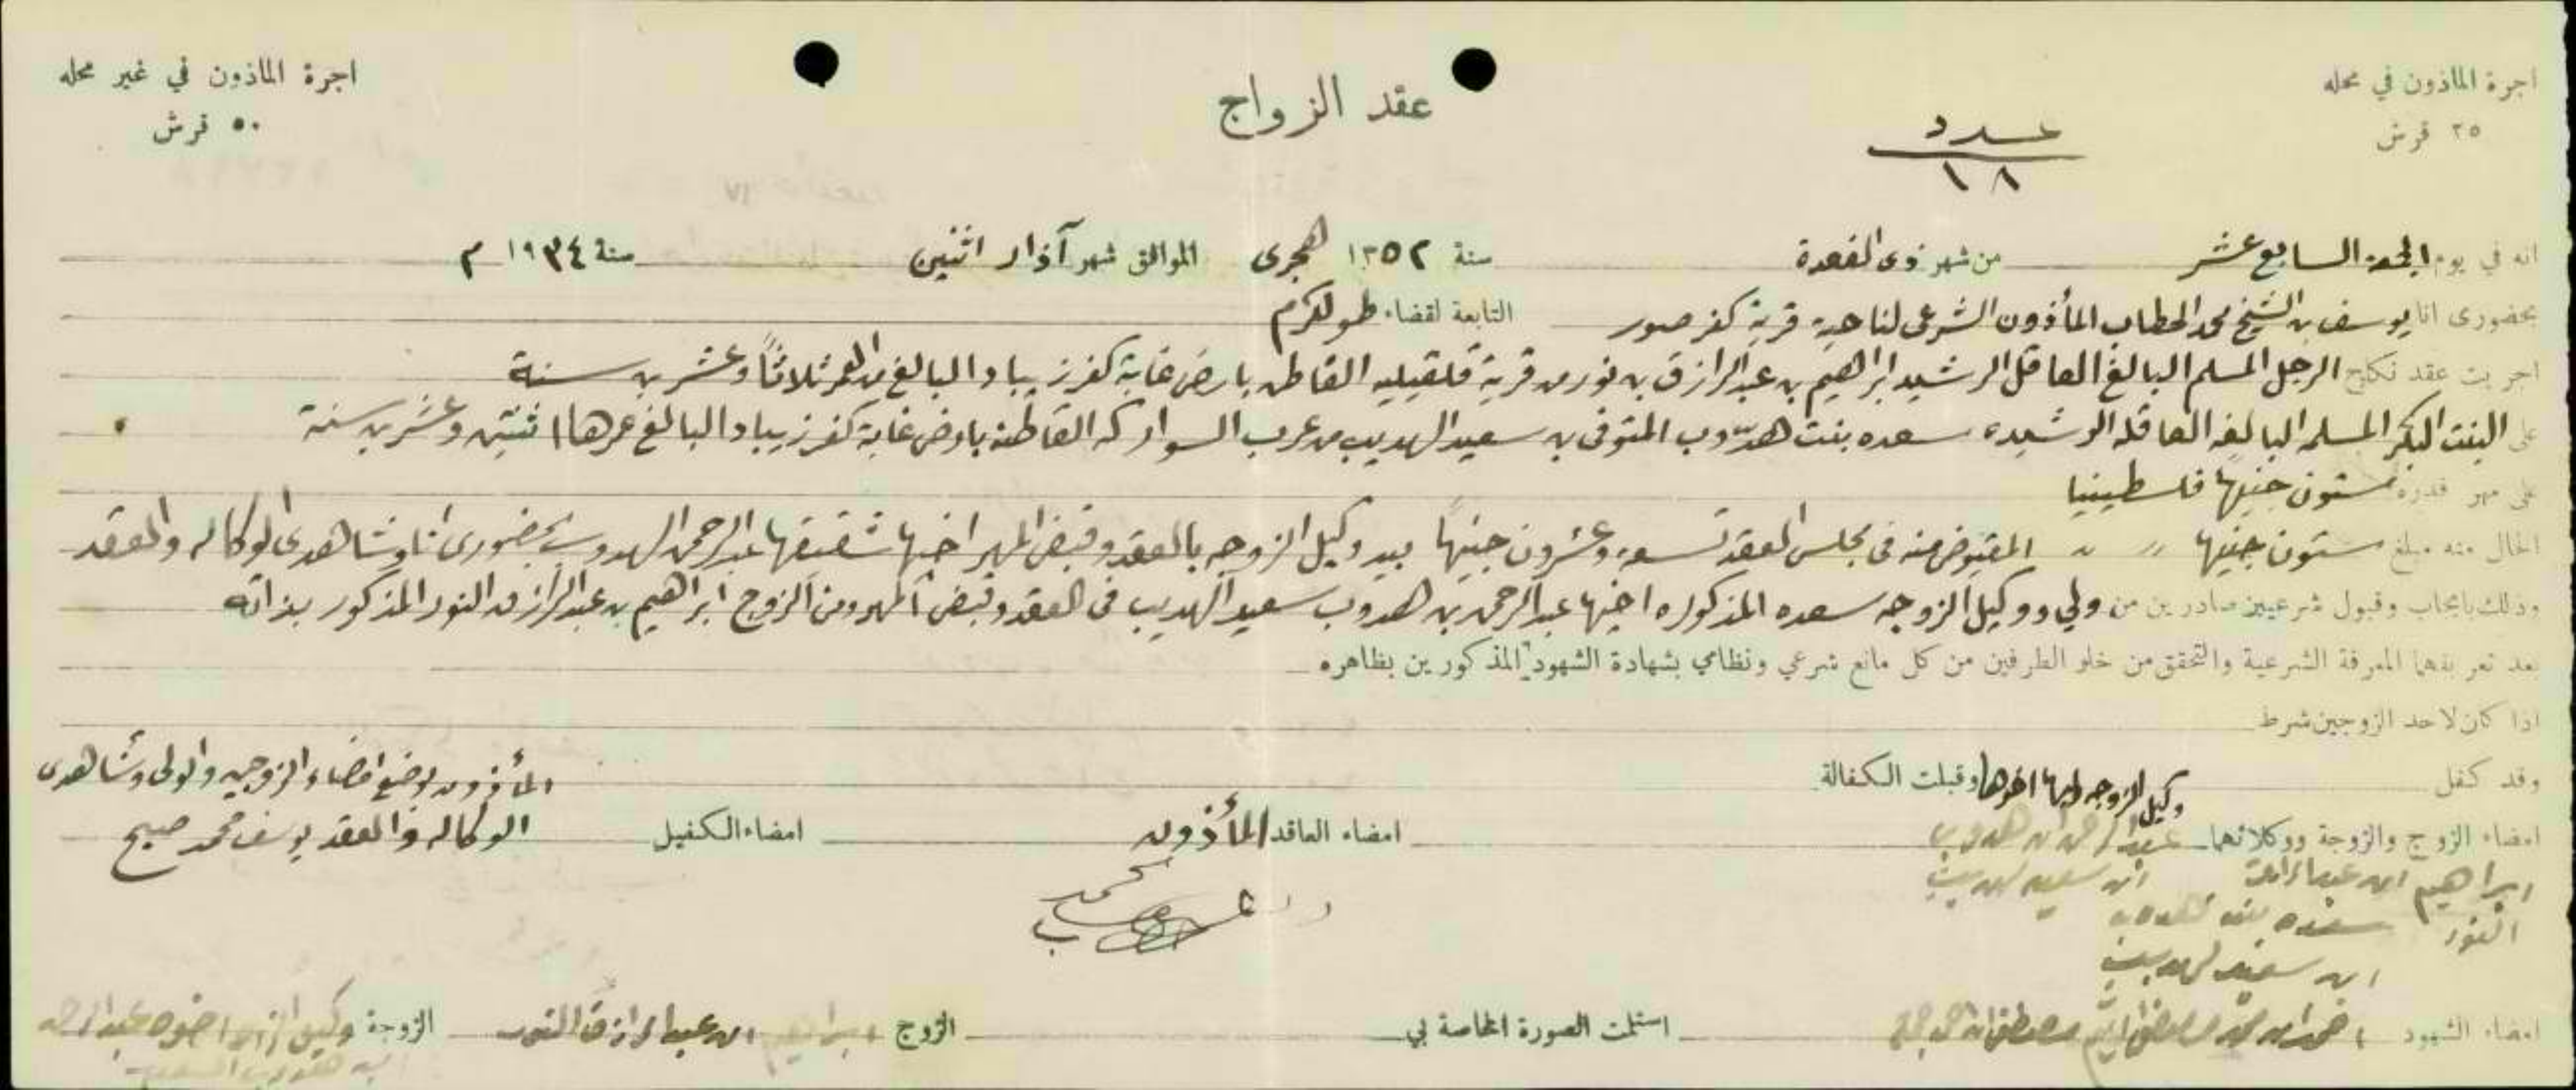 اجرة المأذون في محله
٢٥ قرش
عقد الزواج
اجرة المأذون في غير محله
٥٠ قرش
عدد
١٨
انه في يوم الجمعة السابع عشر من شهر ذى القعدة سنة ١٣٥٢ هجرى الموافق شهر آذار اثنين سنة ١٩٣٤ م
بحضورى انا يوسف بن الشيخ محمد الحطاب المأذون الشرعى لناحية قرية كفر صور التابعة لقضاء طولكرم
اجريت عقد نكاح الرجل المسلم البالغ العاقل الرشيد ابراهيم بن عبد الرازق بن نور من قرية قلقيليه القاطن بارض غابة كفر زيباد البالغ من العمر ثلاثاً وعشرين سنة
على البنت البكر المسلمه البالغه العاقله الرشيده سعده بنت هدّوب المتوفى بن سعيد الهديب من عرب السواركه القاطنة بارض غابة كفر زيباد البالغ عمرها اثنتين وعشرين سنة
على مهر قدره ستون جنيها فلسطينيا
الحال منه مبلغ ستون جنيها المقبوض منه فى مجلس العقد تسعه وعشرون جنيهاً بيد وكيل الزوجه بالعقد وقبض المهر اخيها شقيقها عبد الرحمن الهدوب بحضورى انا وشاهدى الوكاله والعقد
وذلك بايجاب وقبول شرعيين صادرين من ولي ووكيل الزوجه سعده المذكوره اخيها عبد الرحمن بن هدوب سعيد الهديب فى العقد وقبض المهر ومن الزوج ابراهيم بن عبد الرازق النور المذكور بذاته
بعد تعريفهما المعرفة الشرعية والتحقق من خلو الطرفين من كل مانع شرعي ونظامي بشهادة الشهود المذكورين بظاهره
اذا كان لاحد الزوجين شرط
وقد كفل وقبلت الكفالة
وكيل الزوجه وليها اخوها
المأذون بوضع امضاء الزوجين والولى وشاهدى
امضاء الزوج والزوجة ووكلائهما عبد الرحمن بن هدوب امضاء العاقد المأذون امضاء الكفيل الوكاله والعقد يوسف محمد صبيح
ابراهيم ابن عبد الرازق ابن سعيد لهديب
النور سعده بنت هدوب
ابن سعيد لهديب
امضاء الشهود استلمت الصورة الخاصة بي الزوج ابراهيم ابن عبد الرازق النور الزوجة وكيل اخوها عبد الرحمن